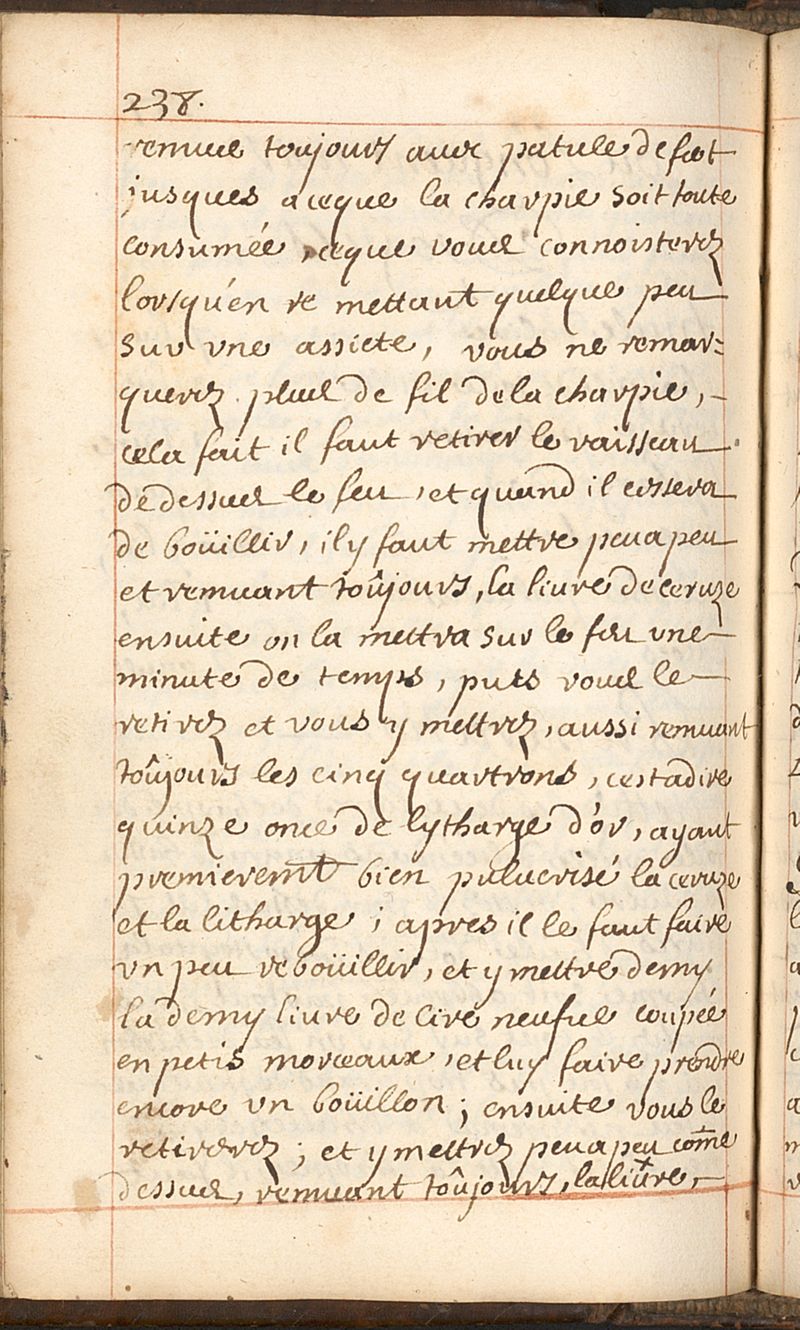 238.
remuee toujours avec patule de fet
jusques aceque la charpie soit toute
consumée, ceque vous connoisterez
lorsqu'en re mettant quelque peu
sur vne assiete, vous ne remar=
querez plus de fil dela charpie,
cela fait il faut retirer le vaisseau
de dessus le feu, et quand il cessera
de boüillir, il y faut mettre peuapeu
et remuant toûjours, la liure de ceruze
ensuite on la mettra sur le feu vne
minute de temps, puis vous le
retirez et vous y mettrez, aussi remuant
toûjours les cinq quartrons, cestadire
quinze once de lytharge d'or, ayant
premieremt bien puluerisé la ceruze
et la litharge; apres il le faut faire
vn peu reboüillir, et y mettre demy
la demy liure de Cire neufue coupée
en petis morceaux, et luy faire prendre
encore vn boüillon; ensuite vous le
retirerez; et y mettrez peuapeu come
dessus, remuant toûjours, la liure,